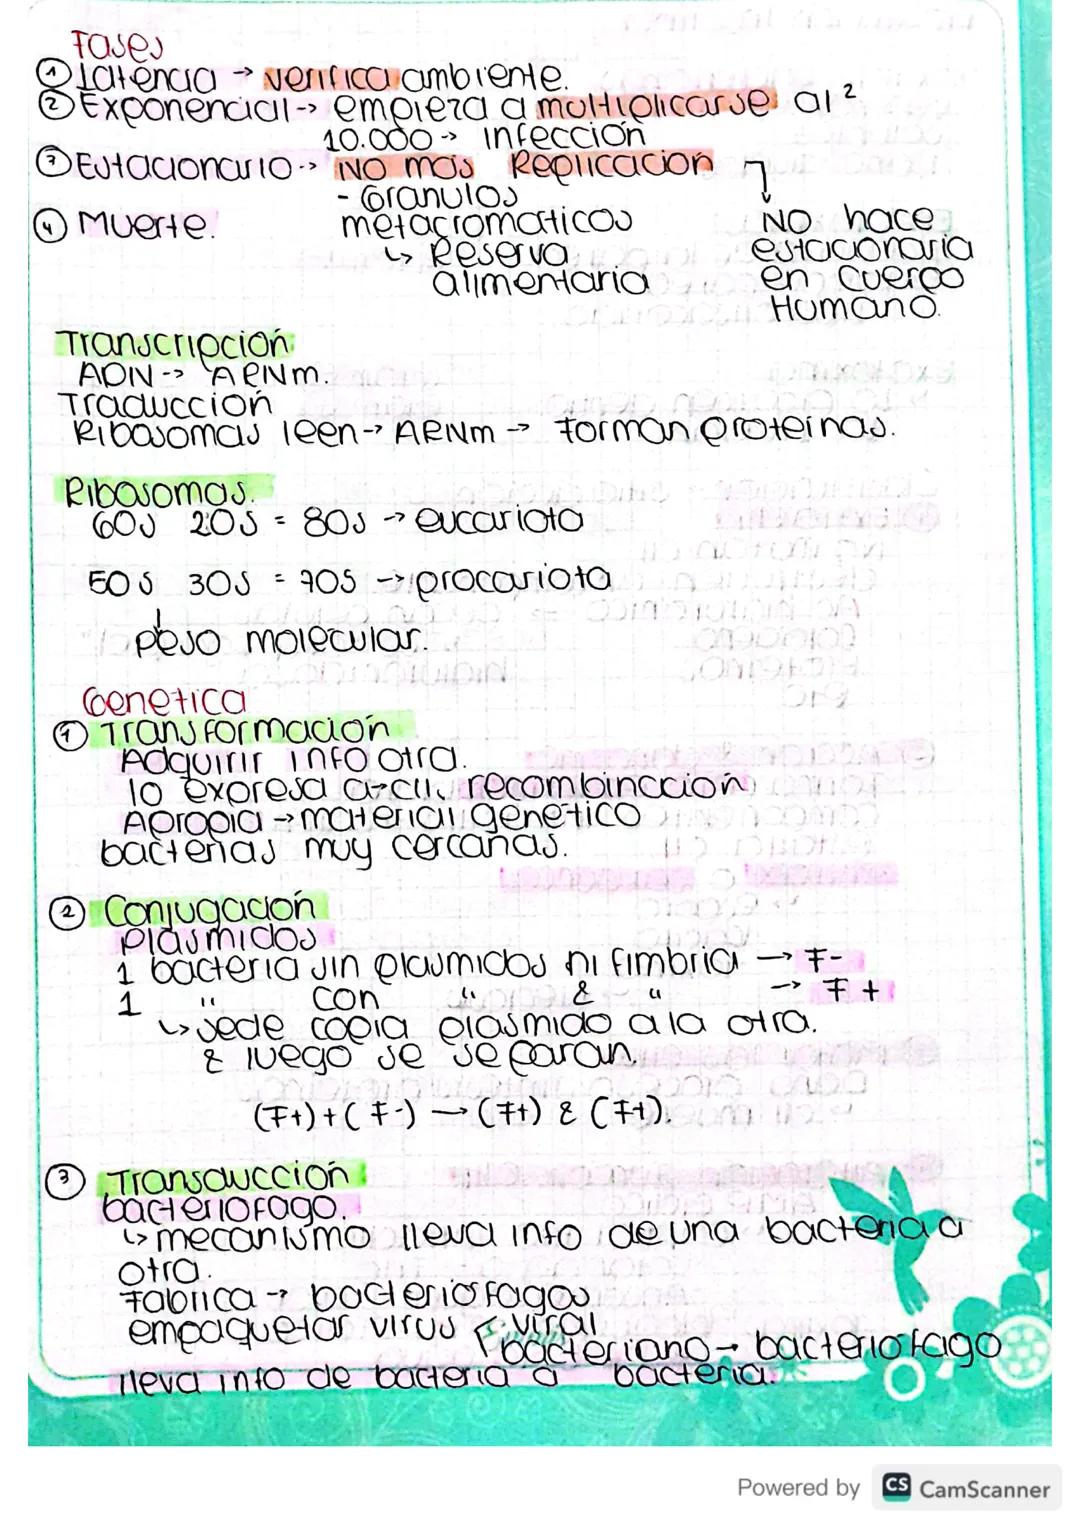 Fases
① Latencia → verifica ambiente.
② Exponencial → empieza a multiplicarse al ²
10.000 → infección
③ Estacionario → NO mas Replicación
- Granulos
metacromaticos
↳ Reserva
alimentaria
NO hace
estacionaria
en cuerpo
Humano.
④ Muerte.
Transcripción
ADN → ARNm.
Traducción
Ribosomas leen → ARNm → Forman proteinas.
Ribosomas.
60s 20s = 80s → eucariota
50s 30s = 70s → procariota
↓
peso molecular.
Genetica
① Transformación
Adquirir info otra.
lo expresa recombinación
Apropia → material genetico
bacterias muy cercanas.
② Conjugación
Plasmidos
1 bacteria sin plasmidos ni fimbria → F-
1 " con " & " → F+
↳ sede copia plasmido a la otra.
& luego se separan.
(F+) + (F-) → (F+) & (F+).
③ Transducción
bacteriofago.
↳ mecanismo lleva info de una bacteria a
otra.
Fabrica → bacteriofagos
empaquetar virus viral
bacteriano → bacteriofago
lleva info de bacteria a bacteria.
Powered by CS CamScanner